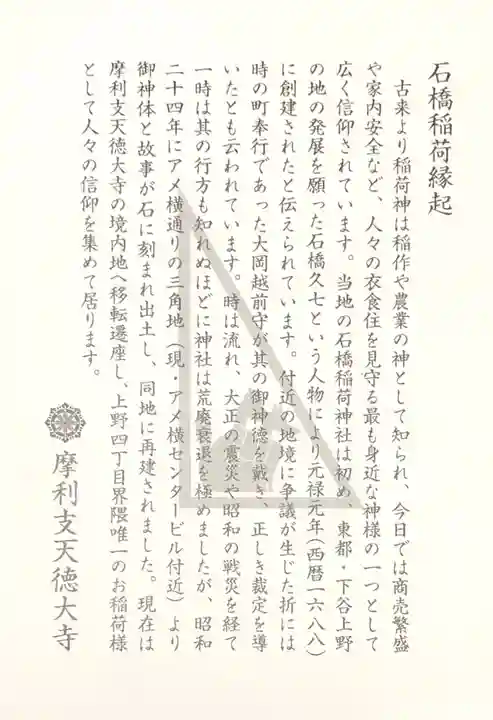 石橋稲荷縁起
古来より稲荷神は稲作や農業の神として知られ、今日では商売繁盛
や家内安全など、人々の衣食住を見守る最も身近な神様の一つとして
広く信仰されています。当地の石橋稲荷神社は初め、東都・下谷上野
の地の発展を願った石橋久七という人物により元禄元年(西暦一六八八)
に創建されたと伝えられています。付近の地境に争議が生じた折には
時の町奉行であった大岡越前守が其の御神徳を戴き、正しき裁定を導
いたとも云われています。時は流れ、大正の震災や昭和の戦災を経て
一時は其の行方も知れぬほどに神社は荒廃衰退を極めましたが、昭和
二十四年にアメ横通りの三角地(現・アメ横センタービル付近)より
御神体と故事が石に刻まれ出土し、同地に再建されました。現在は
摩利支天徳大寺の境内地へ移転遷座し、上野四丁目界隈唯一のお稲荷様
として人々の信仰を集めて居ります。
摩利支天徳大寺